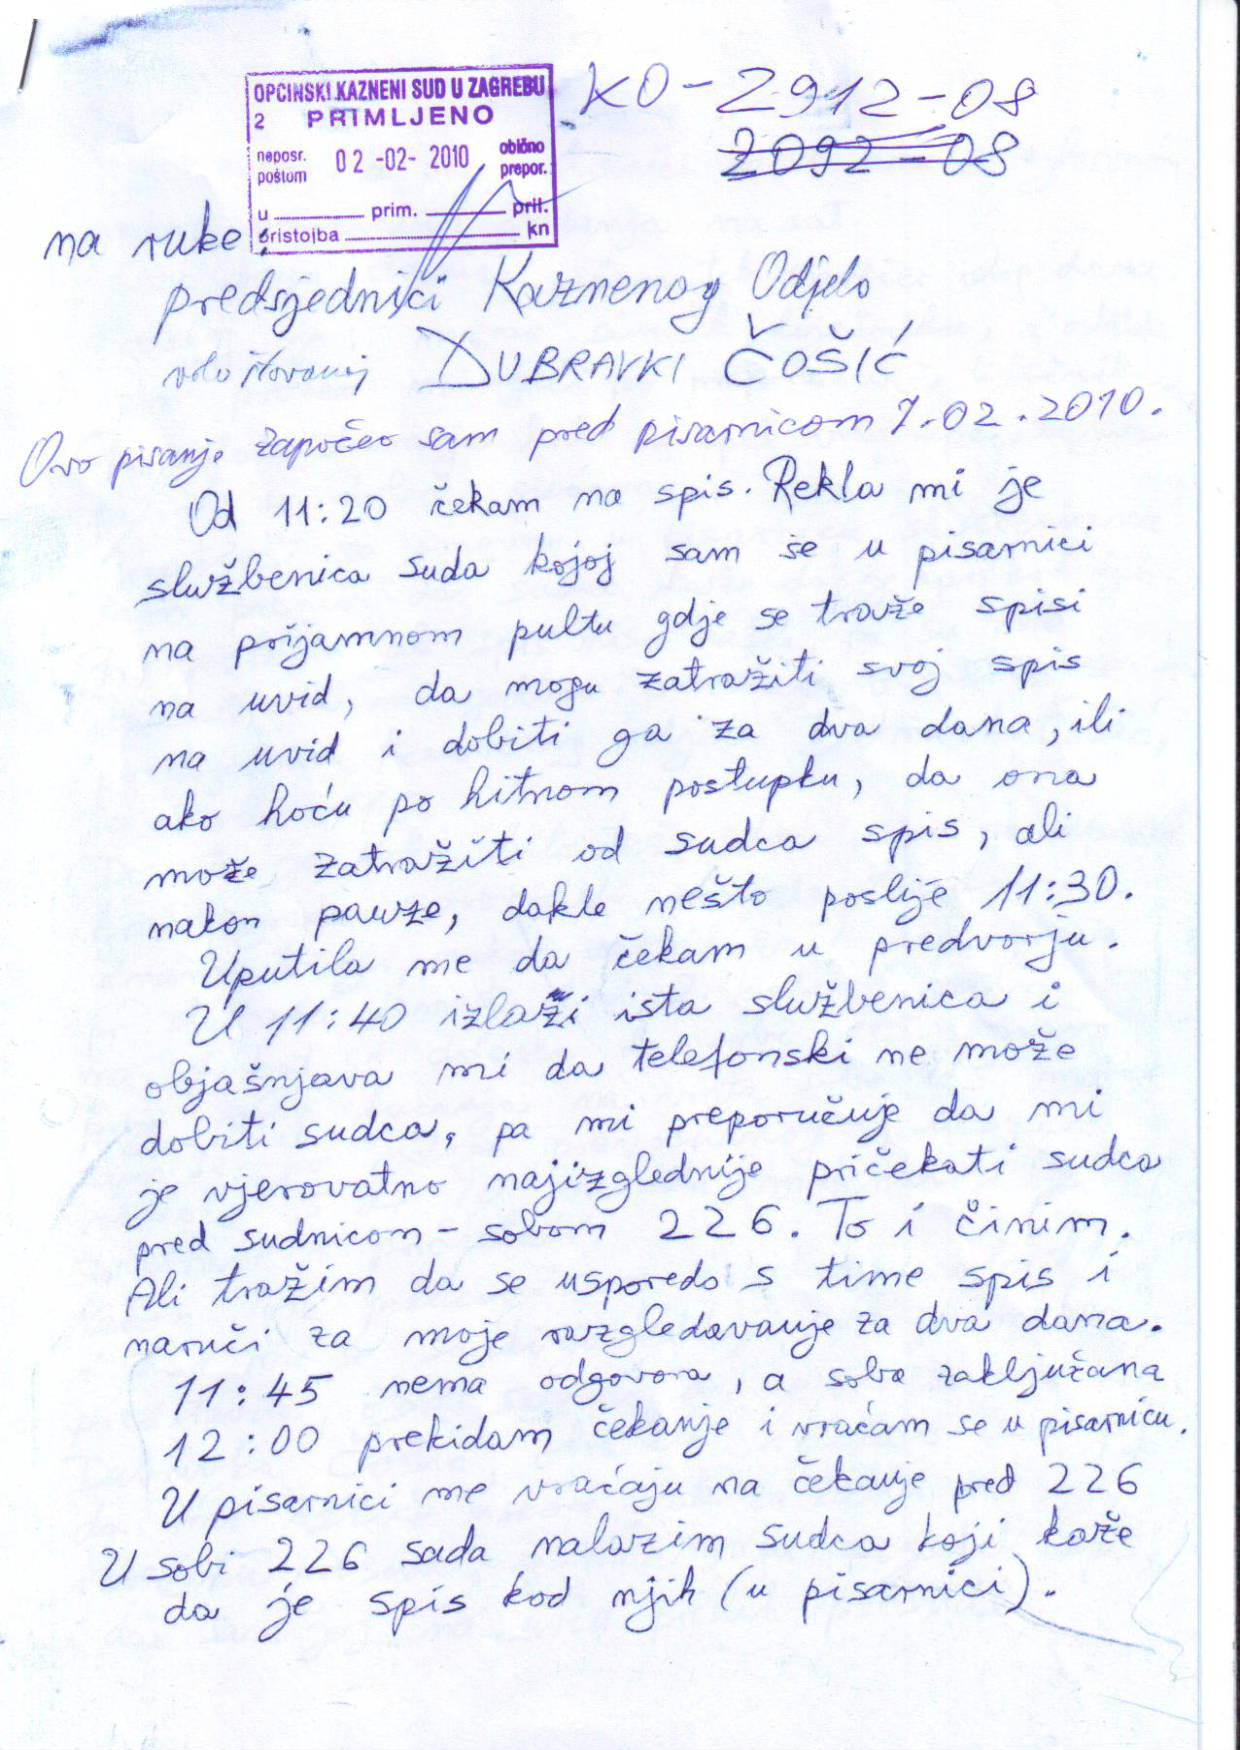 OPĆINSKI KAZNENI SUD U ZAGREBU
2 PRIMLJENO
neposr. 02-02-2010 obično
poštom prepor.
u prim. pril.
pristojba kn
KO-2912-08
2092-08
na ruke:
predsjednici Kaznenog Odjela
DUBRAVKI ČOŠIĆ
Ovo pisanje započeo sam pred pisarnicom 1.02.2010.
Od 11:20 čekam na spis. Rekla mi je
službenica suda kojoj sam se u pisarnici
na prijamnom pultu gdje se traže spisi
na uvid, da mogu zatražiti svoj spis
na uvid i dobiti ga za dva dana, ili
ako hoću po hitnom postupku, da ona
može zatražiti od sudca spis, ali
nakon pauze, dakle nešto poslije 11:30.
Uputila me da čekam u predvorju.
U 11:40 izlazi ista službenica i
objašnjava mi da telefonski ne može
dobiti sudca, pa mi preporučuje da mi
je vjerovatno najizglednije pričekati sudca
pred sudnicom - sobom 226. To i činim.
Ali tražim da se usporedo s time spis i
naruči za moje razgledavanje za dva dana.
11:45 nema odgovora, a soba zaključana
12:00 prekidam čekanje i vraćam se u pisarnicu.
U pisarnici me vraćaju na čekanje pred 226
U sobi 226 sada nalazim sudca koji kaže
da je spis kod njih (u pisarnici).